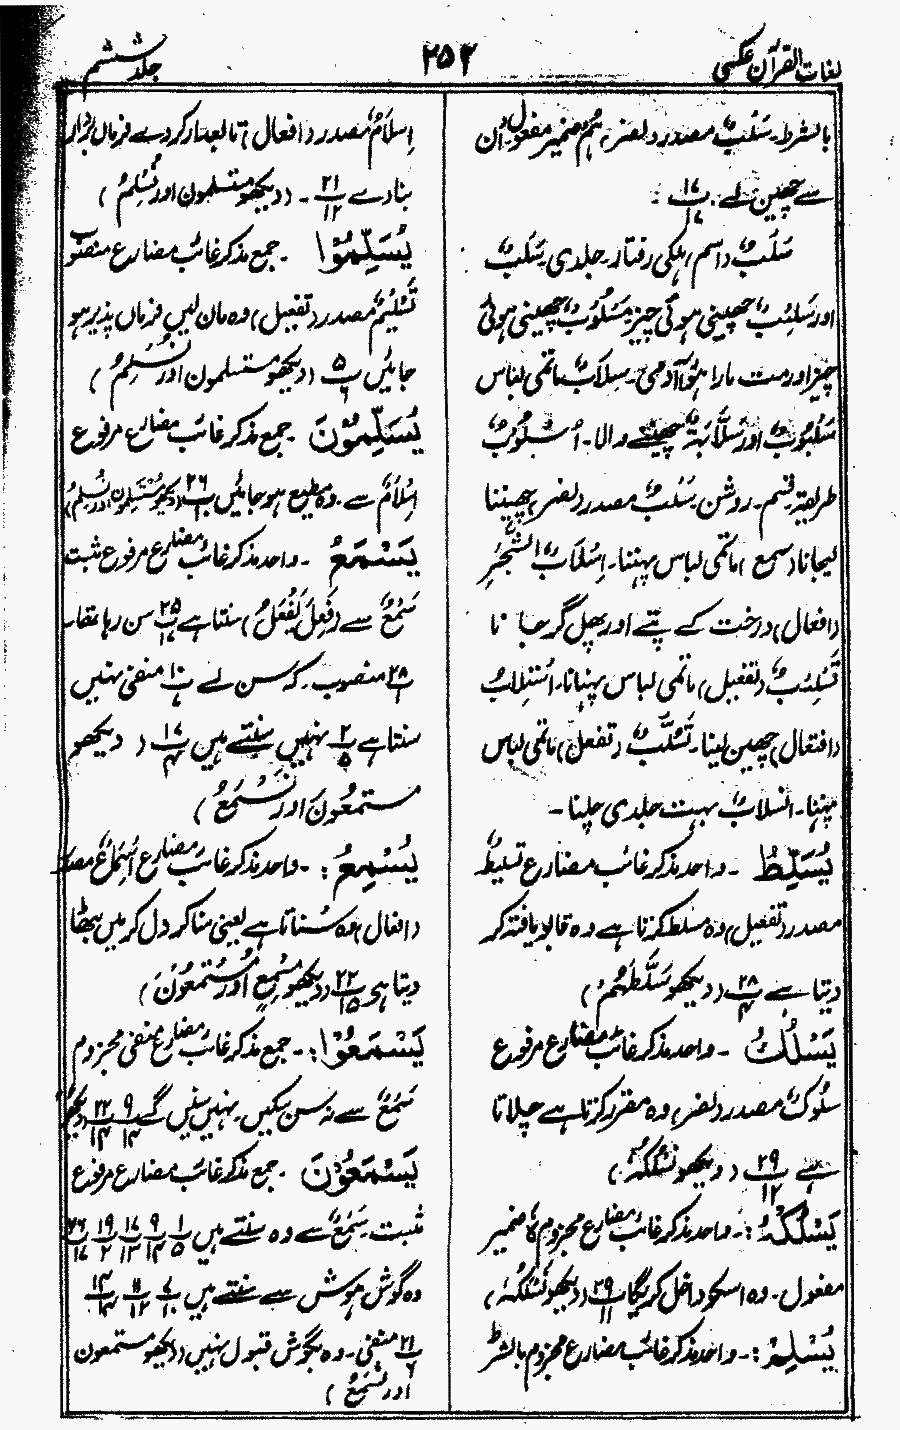 لغات القرآن عکسی
۲۵۲
جلد ششم
بالشرط۔ سَلْبٌ مصدر (نصر) ہُمْ ضمیر مفعول ان
سے چھین لے۔ ۱۷/۱۷
سَلَبٌ (اسم) ہلکی رفتار۔ جلدی سَلَبٌ
اور سَلِیْبٌ چھینی ہوئی چیز مَسْلُوْبٌ چھینی ہوئی
چیز اور مست مارا ہوا آدمی۔ سِلَابٌ ماتمی لباس
سَلُبُوْبٌ اور سَلَّابَۃٌ چھیننے والا۔ اُسْلُوْبٌ
طریقہ قسم۔ روش سَلْبٌ مصدر (نصر) چھیننا
لیجانا (سمع) ماتمی لباس پہننا۔ اِسْلَابٌ الشَّجَرِ
(افعال) درخت کے پتے اور پھل گر جانا
تَسْلِیْبٌ (تفعیل) ماتمی لباس پہنانا۔ اِسْتِلَابٌ
(افتعال) چھین لینا۔ تَسَلُّبٌ (تفعل) ماتمی لباس
پہننا۔ انسلابٌ بہت جلدی چلنا۔
یُسَلِّطُ۔ واحد مذکر غائب مضارع تسلیطٌ
مصدر (تفعیل) وہ مسلط کرتا ہے وہ قابو یافتہ کر
دیتا ہے ۲۸/۴ (دیکھو سَلَّطَهُمْ)
یَسْلُكُ۔ واحد مذکر غائب مضارع مرفوع
سُلُوْكٌ مصدر (نصر) وہ مقرر کرتا ہے چلاتا
ہے ۲۹/۱۲ (دیکھو نَسْلُكُهُ)
یَسْلُكْهُ:۔ واحد مذکر غائب مضارع مجزوم ہٗ ضمیر
مفعول۔ وہ اسکو داخل کریگا ۲۹/۱۱ (دیکھو نَسْلُكُهُ)
یُسْلِمْ:۔ واحد مذکر غائب مضارع مجزوم بالشرط
اِسْلَامٌ مصدر (افعال) تابعدار کر دے فرماں بردار
بنا دے ۲۱/۱۲۔ (دیکھو مستسلمون اور نُسْلِمُ)
یُسَلِّمُوْا۔ جمع مذکر غائب مضارع منصوب
تَسْلِیْمٌ مصدر (تفعیل) وہ مان لیں فرماں پذیر ہو
جائیں ۵/۶ (دیکھو مستسلمون اور نُسْلِمُ)
یُسَلِّمُوْنَ۔ جمع مذکر غائب مضارع مرفوع
اِسْلَامٌ سے۔ وہ مطیع ہو جائیں ۲۶/۱۰ (دیکھو مُسْتَسْلِمُوْنَ اور نُسْلِمُ)
یَسْمَعُ۔ واحد مذکر غائب مضارع مرفوع مثبت
سَمْعٌ سے (فَعِلَ یَفْعَلُ) سنتا ہے ۲۵/۱۷ سن رہا تھا۔
۲۸/۱ منصوب۔ کہ سن لے ۱۰/۶ منفی نہیں
سنتا ہے ۲/۵ نہیں سنتے ہیں ۱۷/۴ (دیکھو
مستمعون اور نَسْمَعُ)
یُسْمِعُ:۔ واحد مذکر غائب مضارع اِسْمَاعٌ مصدر
(افعال) وہ سُناتا ہے یعنی سنا کر دل کر میں بٹھا
دیتا ہے ۲۲/۱۵ (دیکھو مُسْمِعٍ اور مُسْتَمِعُوْنَ)
یَسْمَعُوْا:۔ جمع مذکر غائب مضارع منفی مجزوم
سَمْعٌ سے نہ سن سکیں۔ نہیں سنیں گے ۹/۱۴ ۲۲/۱۴
یَسْمَعُوْنَ۔ جمع مذکر غائب مضارع مرفوع
مثبت۔ سَمْعٌ سے وہ سنتے ہیں ۱/۵ ۹/۱۴ ۱۷/۱۳ ۱۹/۲ ۲۶/۱۷
وہ گوش ہوش سے سنتے ہیں ۷/۱۰ ۱۱/۱۲ ۱۴/۱۴
۲۱/۶ منفی۔ وہ بگوش قبول نہیں (دیکھو مستمعون
اور نَسْمَعُ)